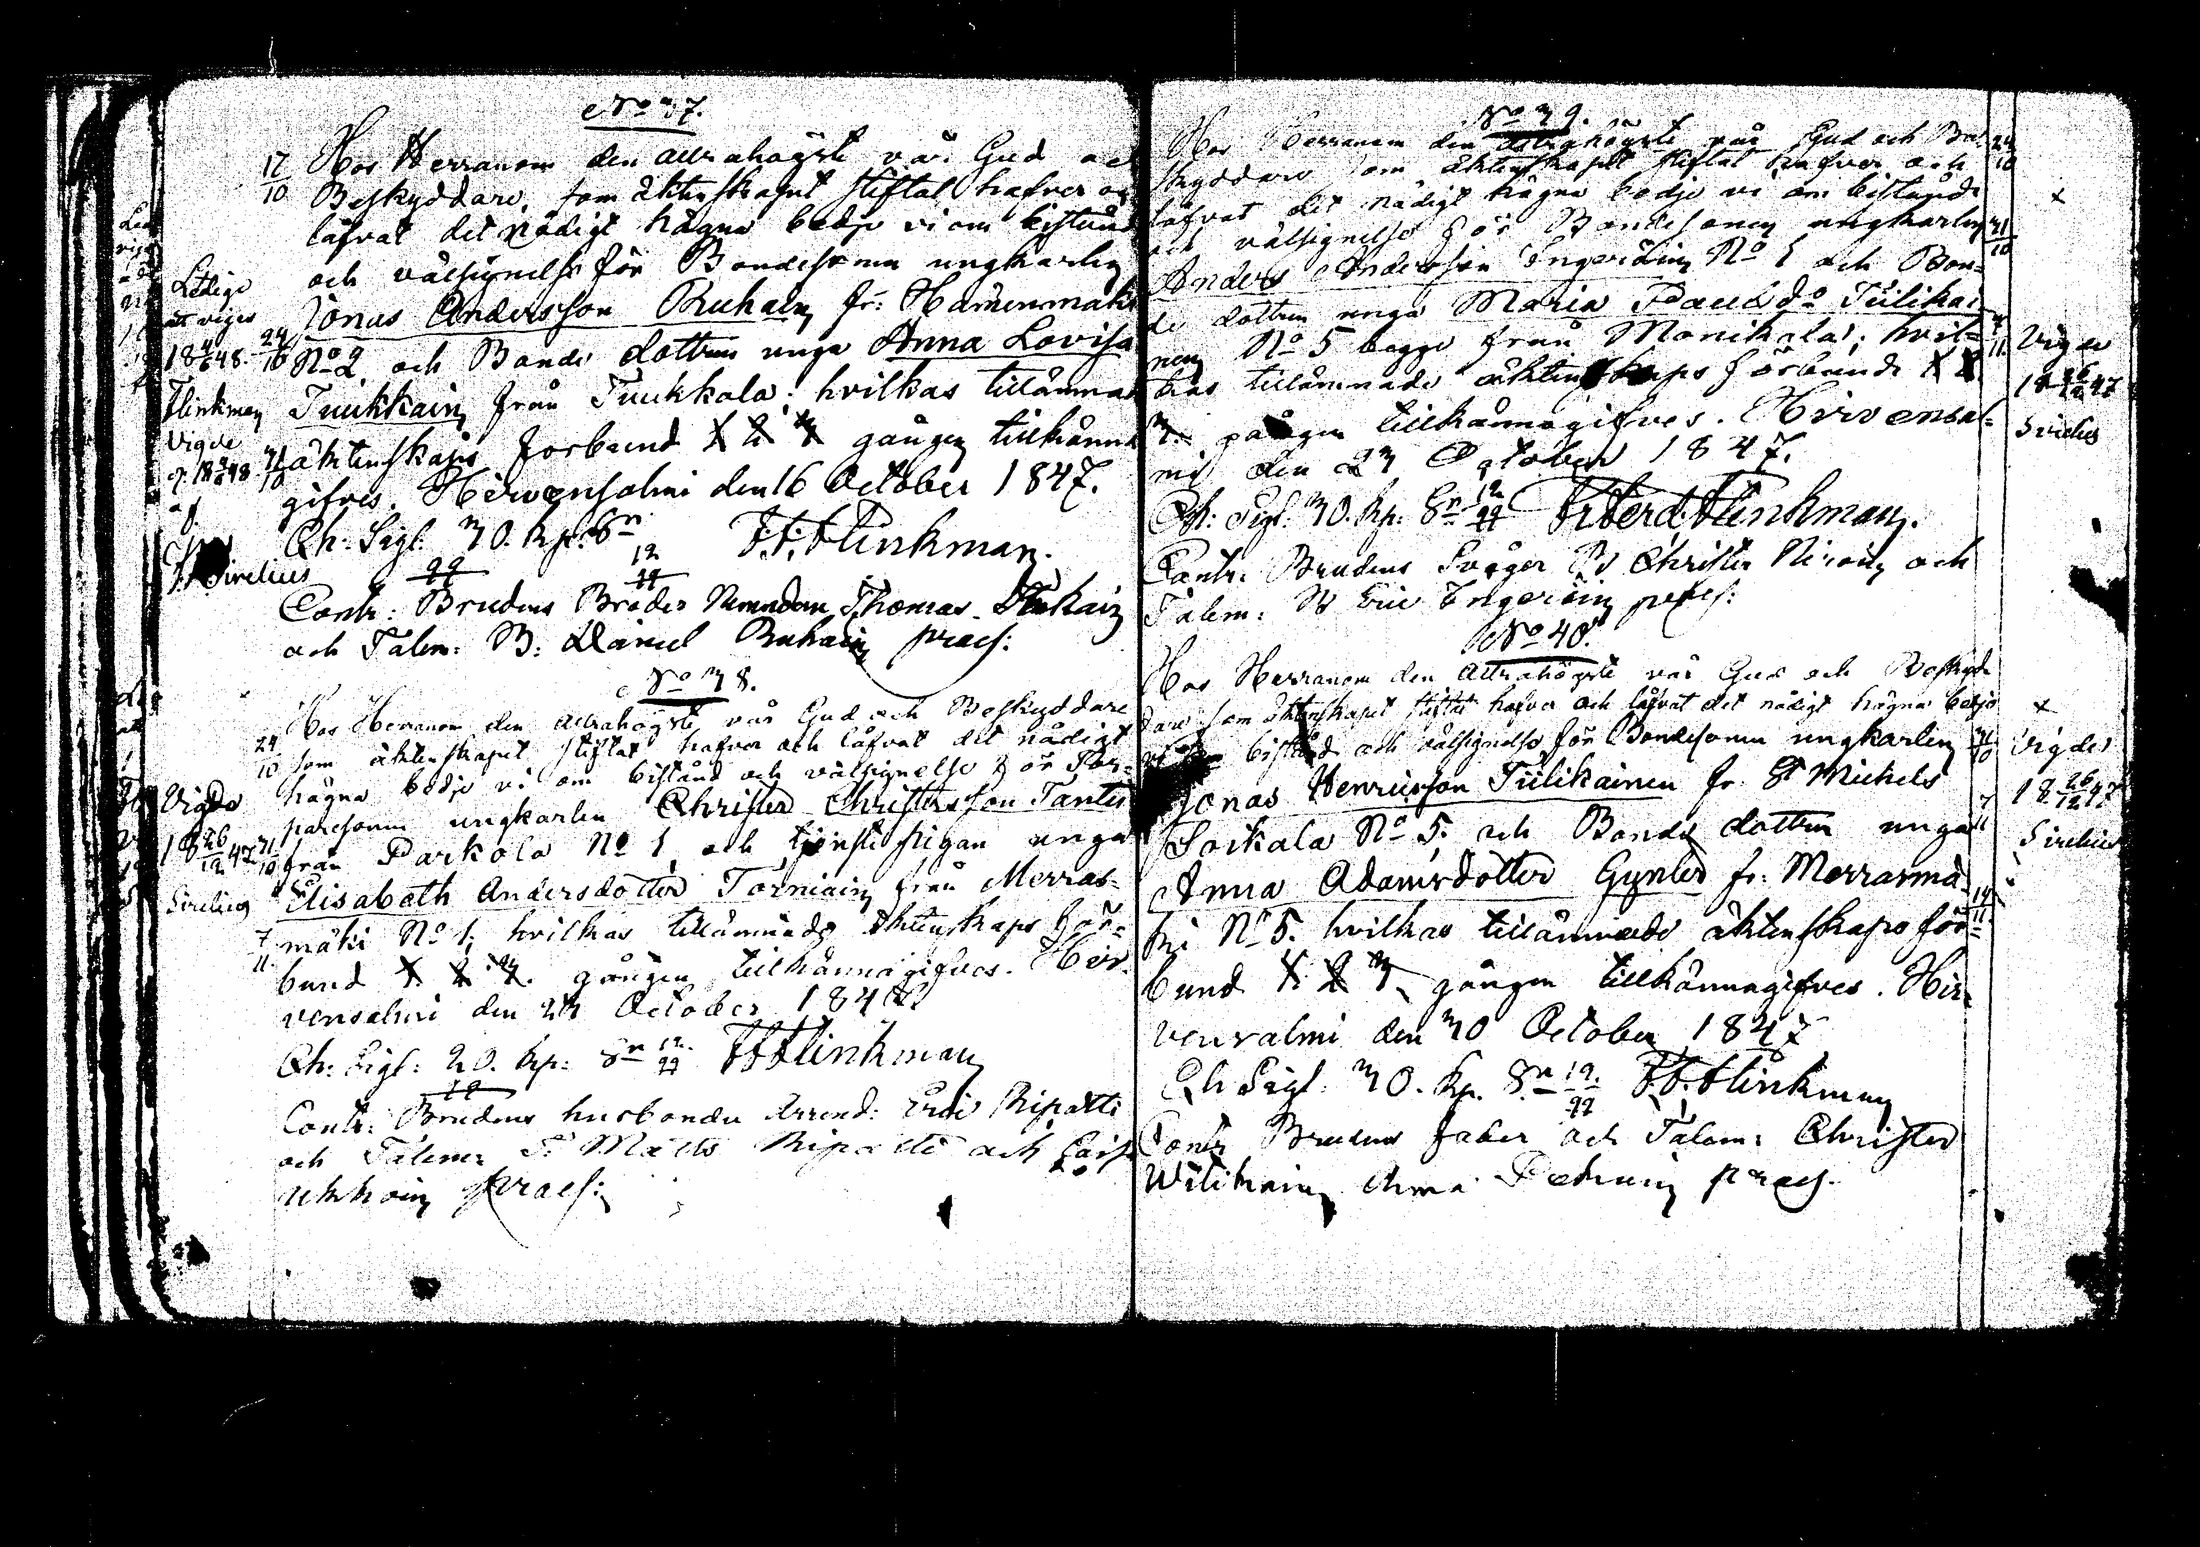 No 37.
17/10 Hos Herranom den allrahögste vår Gud och
Beskyddare, som äktenskapet stiftat hafver och
låfvat det nådigt hägna bedje vi om bistånd
och välsignelse för Bondesonen ungkarlen
Jonas Andersson Ruhain fr: Hämenmäki
24/10 No 2 och Bonde dottren unga Anna Lovisa
Tuukkain från Tuukkala: hvilkas tillämnade
31/10 äktenskaps forbund 1 2 3 gången tillkänna
gifves. Hirvensalmi den 16 October 1847.
Ch: Sigl: 30. kp: Sr 12/99 F.F. Flinkman.
Contr: Brudens Broder Thomas
och Talem: B: Daniel Ruhain præs:
Ledige
at viges
18 48.
Flinkman
Vigde
af
Sirelius
No 38.
24/10 Hos Herranom den allrahögste vår Gud och Beskyddare
som äktenskapet stiftat hafver och låfvat det nådigt
hägna bedje vi om bistånd och välsignelse för Tor-
paresonen ungkarlen Christer Christersson Tanti
31/10 från Parkola No 1 och tjenstepigan unga
Elisabeth Andersdotter Torniain från Merras-
7/11 mäki No 1; hvilkas tillämnade äktenskaps för-
bund 1 2 3. gången tillkännagifves. Hir-
vensalmi den 23 October 1847.
Ch: Sigl: 20. kp: Sr 12/99 F.F. Flinkman
Contr: Brudens husbonde Arrend: Eric Ripatti
och Talem: Matts Ripatti och
Ukkoin præs:
Vigde
18 26/12 47
Sirelius
No 39.
Hos Herranom den allrahögste vår Gud och Be- 24/10
skyddare som äktenskapet stiftat hafver och
låfvat det nådigt hägna bedje vi om bistånd
och välsignelse för Bondesonen ungkarlen 31/10
Anders Andersson Ingeroin No 1 och Bon-
de dottren unga Maria Pauls do Tiilikai-
nen No 5 bägge från Monikala; hvil- 7/11
kas tillämnade äktenskaps förbund 1 2
3. gången tillkännagifves. Hirvensal-
mi den 23 October 1847.
Ch: Sigl: 30. kp: Sr 12/99 Fr Ferd. Flinkman.
Contr: Brudens Svåger B Christer och
Talem: B Eric Ingeroin præs:
Vigde
18 26/12 47
Sirelius
No 40.
Hos Herranom den Allrahögste vår Gud och Beskyd-
dare som äktenskapet stiftat hafver och låfvat det nådigt hägna bedje
vi om bistånd och välsignelse för Bondesonen ungkarlen 31/10
Jonas Henricsson Tiilikainen fr. St Michels
Soikala No 5. och Bonde dottren unga 7/11
Anna Adamsdotter Gynter fr: Merrasmä- 14/11
ki No 5. hvilkas tillämnade äktenskaps för-
bund 1 2 3 gången tillkännagifves. Hir-
vensalmi den 30 October 1847
Ch Sigl: 30. kp. Sr 12/99 F.F. Flinkman
Contr Brudens fader och Talem: Christer
præs.
Vigde
18 26/12 47
Sirelius